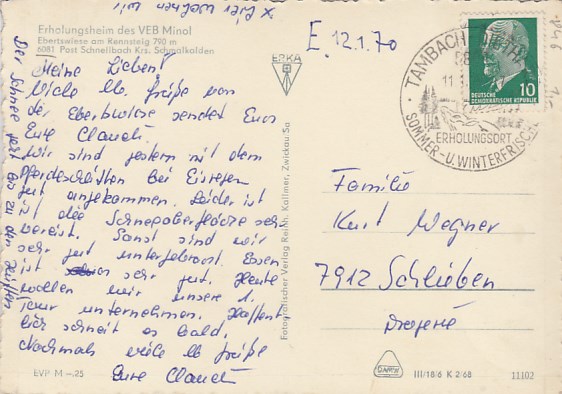 Erholungsheim des VEB Minol
Ebertswiese am Rennsteig 790 m
6081 Post Schnellbach Krs. Schmalkalden
E. 12.1.70
Meine Lieben!
Viele lb. Grüße von
der Ebertswiese sendet Euch
Eure Claudi.
Wir sind gestern mit dem
Pferdeschlitten bei Eisregen
gut angekommen. Leider ist
ist die Schneeoberfläche sehr
vereist. Sonst sind wir
sehr gut untergebracht. Essen
ist sehr gut. Heute
wollen wir unsere 1.
Tour unternehmen. Hoffent
lich schneit es bald.
Nochmals viele lb Grüße
Eure Claudi
Der Schnee geht bis zu den Hüften
EVP M –.25
ERKA
Fotografischer Verlag Reinh. Kallmer, Zwickau/Sa
TAMBACH-DIETHARZ
ERHOLUNGSORT
SOMMER- U. WINTERFRISCHE
DEUTSCHE
DEMOKRATISCHE REPUBLIK
10
Familie
Kurt Wegner
7912 Schlieben
Drogerie
III/18/6 K 2/68
11102